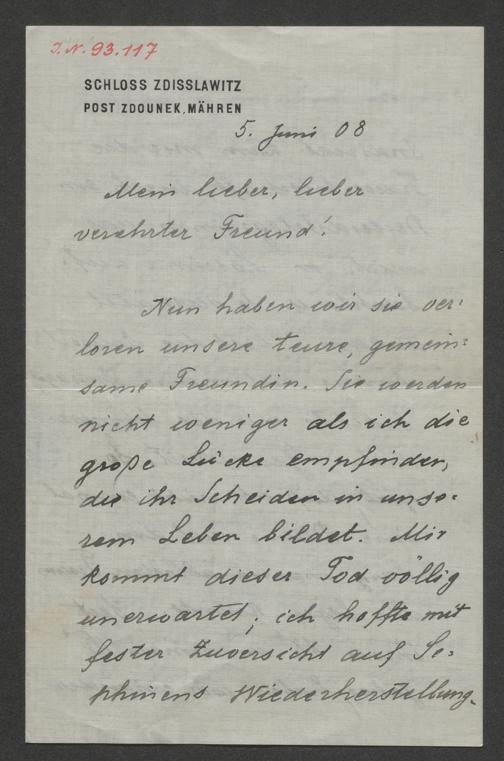 I. N. 93.117
SCHLOSS ZDISSLAWITZ
POST ZDOUNEK, MÄHREN
5. Juni 08
Mein lieber, lieber
verehrter Freund!
Nun haben wir sie ver-
loren unsere teure, gemein=
same Freundin. Sie werden
nicht weniger als ich die
große Lücke empfinden,
die ihr Scheiden in unse-
rem Leben bildet. Mir
kommt dieser Tod völlig
unerwartet; ich hoffte mit
fester Zuversicht auf Se-
phinens Wiederherstellung.